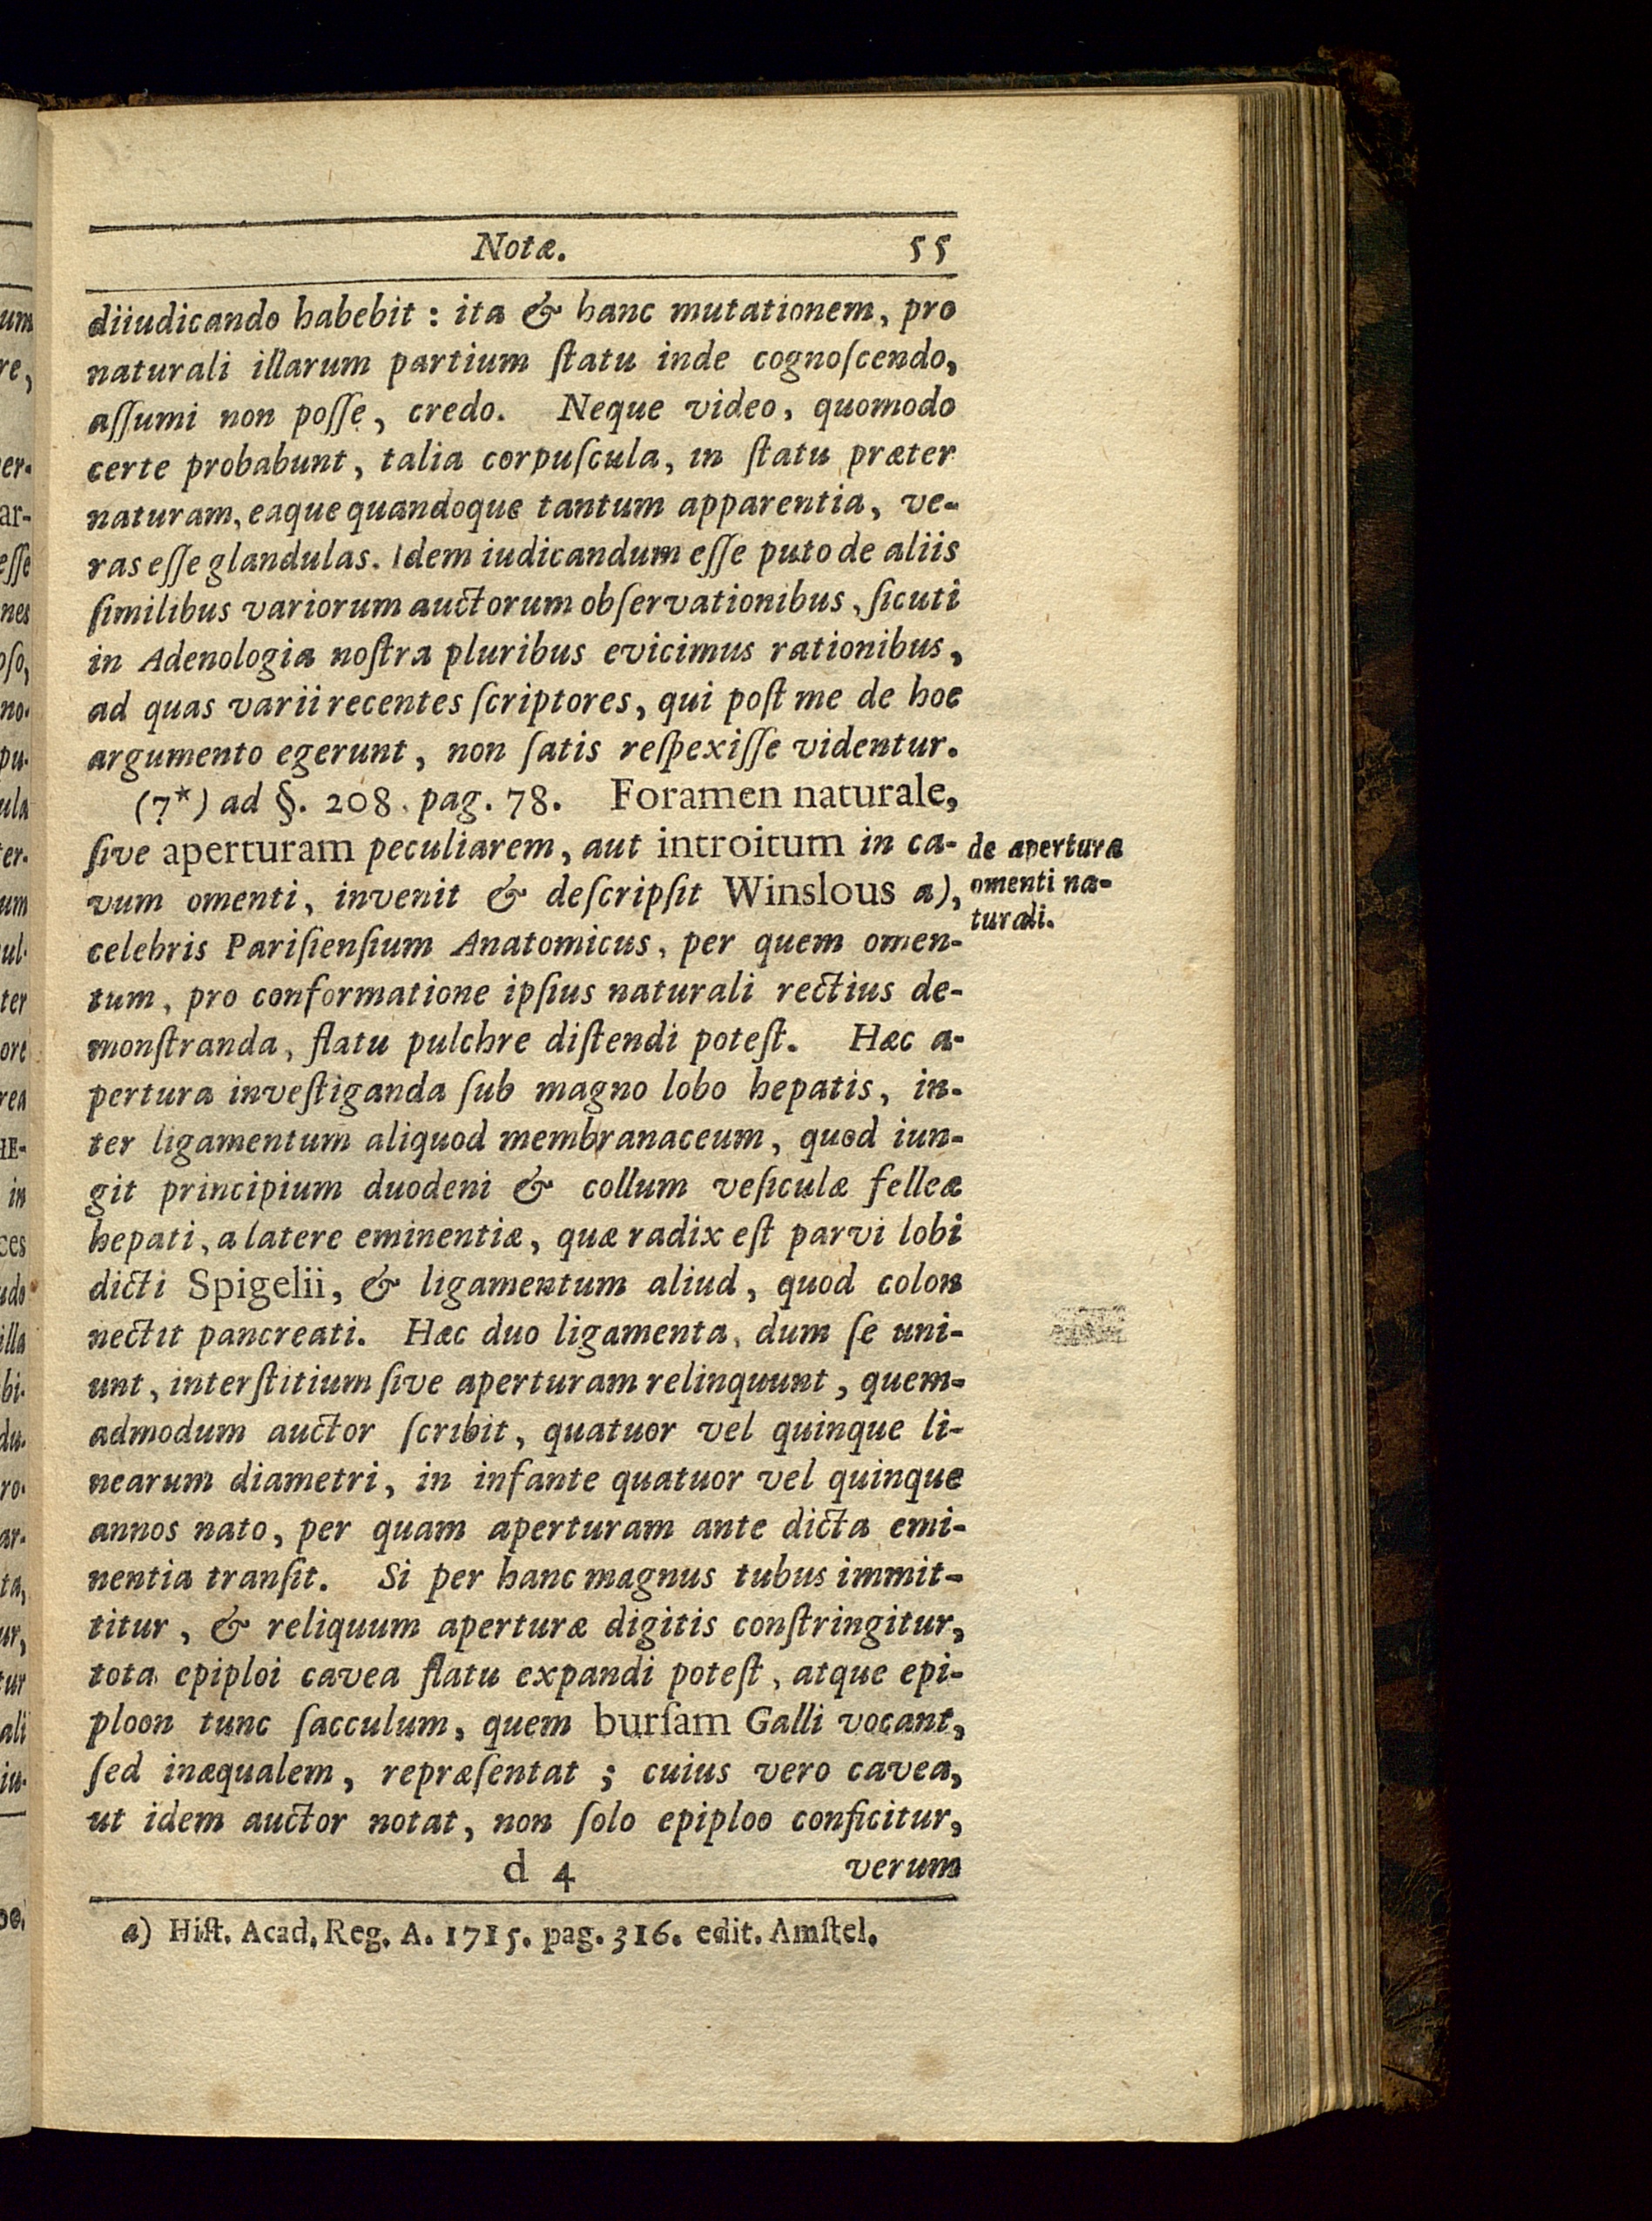 Notæ. 55
diiudicando habebit : ita & hanc mutationem, pro
naturali illarum partium ſtatu inde cognoſcendo,
aſſumi non poſſe, credo. Neque video, quomodo
certe probabunt, talia corpuſcula, in ſtatu præter
naturam, eaque quandoque tantum apparentia, ve-
ras eſſe glandulas. Idem iudicandum eſſe puto de aliis
ſimilibus variorum auctorum obſervationibus, ſicuti
in Adenologia noſtra pluribus evicimus rationibus,
ad quas varii recentes ſcriptores, qui poſt me de hoc
argumento egerunt, non ſatis reſpexiſſe videntur.
(7*) ad §. 208. pag. 78. Foramen naturale,
ſive aperturam peculiarem, aut introitum in ca-
vum omenti, invenit & deſcripſit Winslous a),
celebris Pariſienſium Anatomicus, per quem omen-
tum, pro conformatione ipſius naturali rectius de-
monſtranda, flatu pulchre diſtendi poteſt. Hæc a-
pertura inveſtiganda ſub magno lobo hepatis, in-
ter ligamentum aliquod membranaceum, quod iun-
git principium duodeni & collum veſiculæ felleæ
hepati, a latere eminentiæ, quæ radix eſt parvi lobi
dicti Spigelii, & ligamentum aliud, quod colon
nectit pancreati. Hæc duo ligamenta, dum ſe uni-
unt, interſtitium ſive aperturam relinquunt, quem-
admodum auctor ſcribit, quatuor vel quinque li-
nearum diametri, in infante quatuor vel quinque
annos nato, per quam aperturam ante dicta emi-
nentia tranſit. Si per hanc magnus tubus immit-
titur, & reliquum aperturæ digitis conſtringitur,
tota epiploi cavea flatu expandi poteſt, atque epi-
ploon tunc ſacculum, quem burſam Galli vocant,
ſed inæqualem, repræſentat ; cuius vero cavea,
ut idem auctor notat, non ſolo epiploo conficitur,
d 4 verum
de apertura
omenti na-
turali.
a) Hiſt. Acad. Reg. A. 1715. pag. 316. edit. Amſtel.